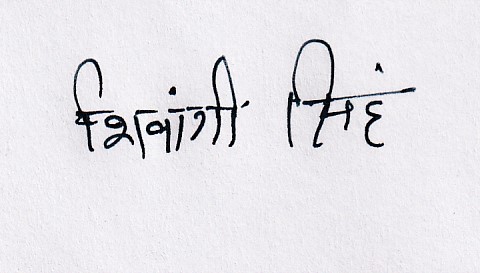 शिवांगी सिंह